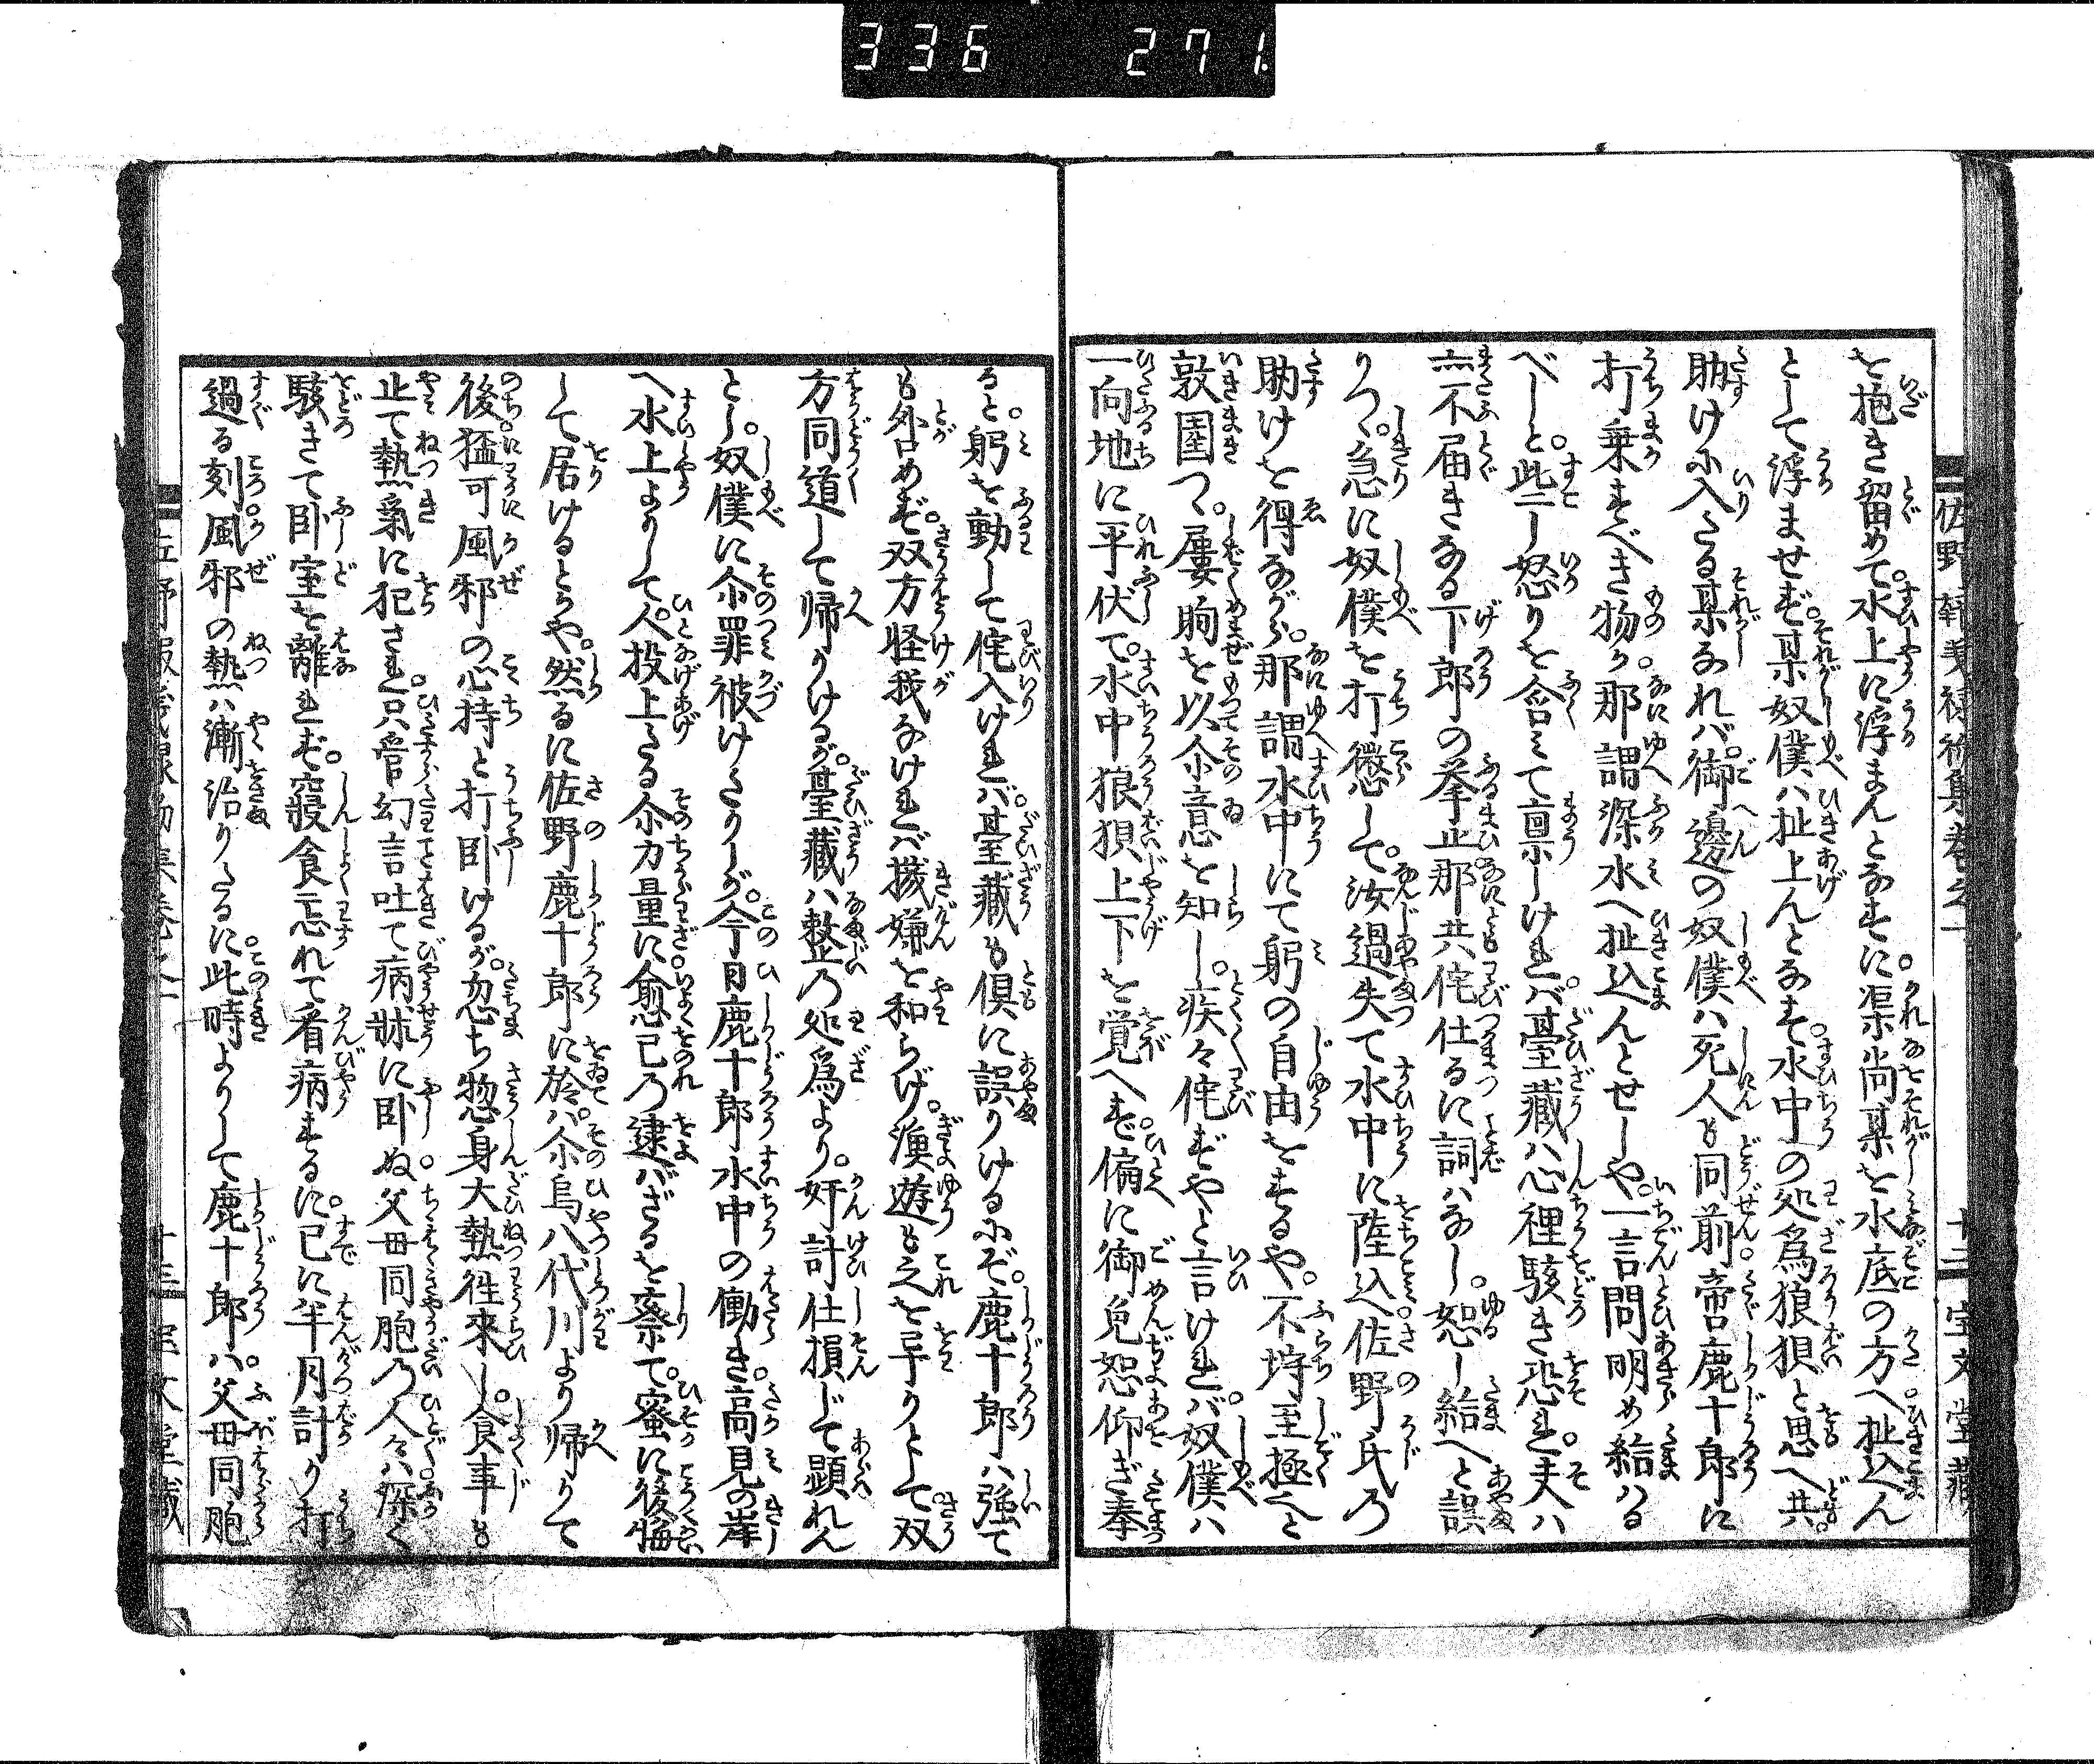 336 271.
佐野報義録後集巻之一 十二 宝文堂藏
を抱き留めて。水上に浮まんとなすに。渠尚某を水底の方へ扯込ん
として浮ませず。某奴僕ハ扯上んとなす。水中の処為狼狽と思へ共。
助けに入たる某なれバ。御邊の奴僕ハ死人も同前。啻鹿十郎に
打乗すべき物か。那謂深水へ扯込んとせしや。一言問明め給はる
べしと。些二し怒りを含ミて稟しけれバ。臺藏ハ心裡駭き恐れ。夫ハ
亦不届きなる下郎の挙止。那共侘仕るに詞ハなし。恕し給へと誤
りつ。急に奴僕を打懲して。汝過失て水中に陸込。佐野氏乃
助けを得ながら。那謂水中にて躬の自由をするや。不埒至極と
敦圉つ。屢眴を以尒意を知し。疾々侘ずやと言けれバ。奴僕ハ
一向地に平伏て。水中狼狽上下を覚へず。偏に御免恕仰ぎ奉
ると。躬を動して侘入けれバ。臺藏も倶に誤りけるにぞ。鹿十郎ハ強て
も外めず。双方怪我なけれバ機嫌を和らげ。漁遊も之を厈りとして。双
方同道して帰りける。が。臺藏ハ整乃処為より。奸計仕損じて顕れん
とし。奴僕に尒罪被けたりしが。今日鹿十郎水中の働き。高見の岸
へ水上よりして。人投上たる尒力量に。愈己乃逮バざるを察て。蜜に後悔
して居けるとや。然るに佐野鹿十郎に於ハ。尒烏八代川より帰りて
後。猛可風邪の心持と打臥けるが。忽ち惣身大熱徃來し。食事も
止て熱氣に犯され。只管幻言吐て病牀に臥ぬ。父母同胞乃人々ハ深く
駭きて。臥室を離れず。寢食忘れて看病するに。已に半月計り打
過る刻。風邪の熱ハ漸治りたるに。此時よりして鹿十郎ハ。父母同胞